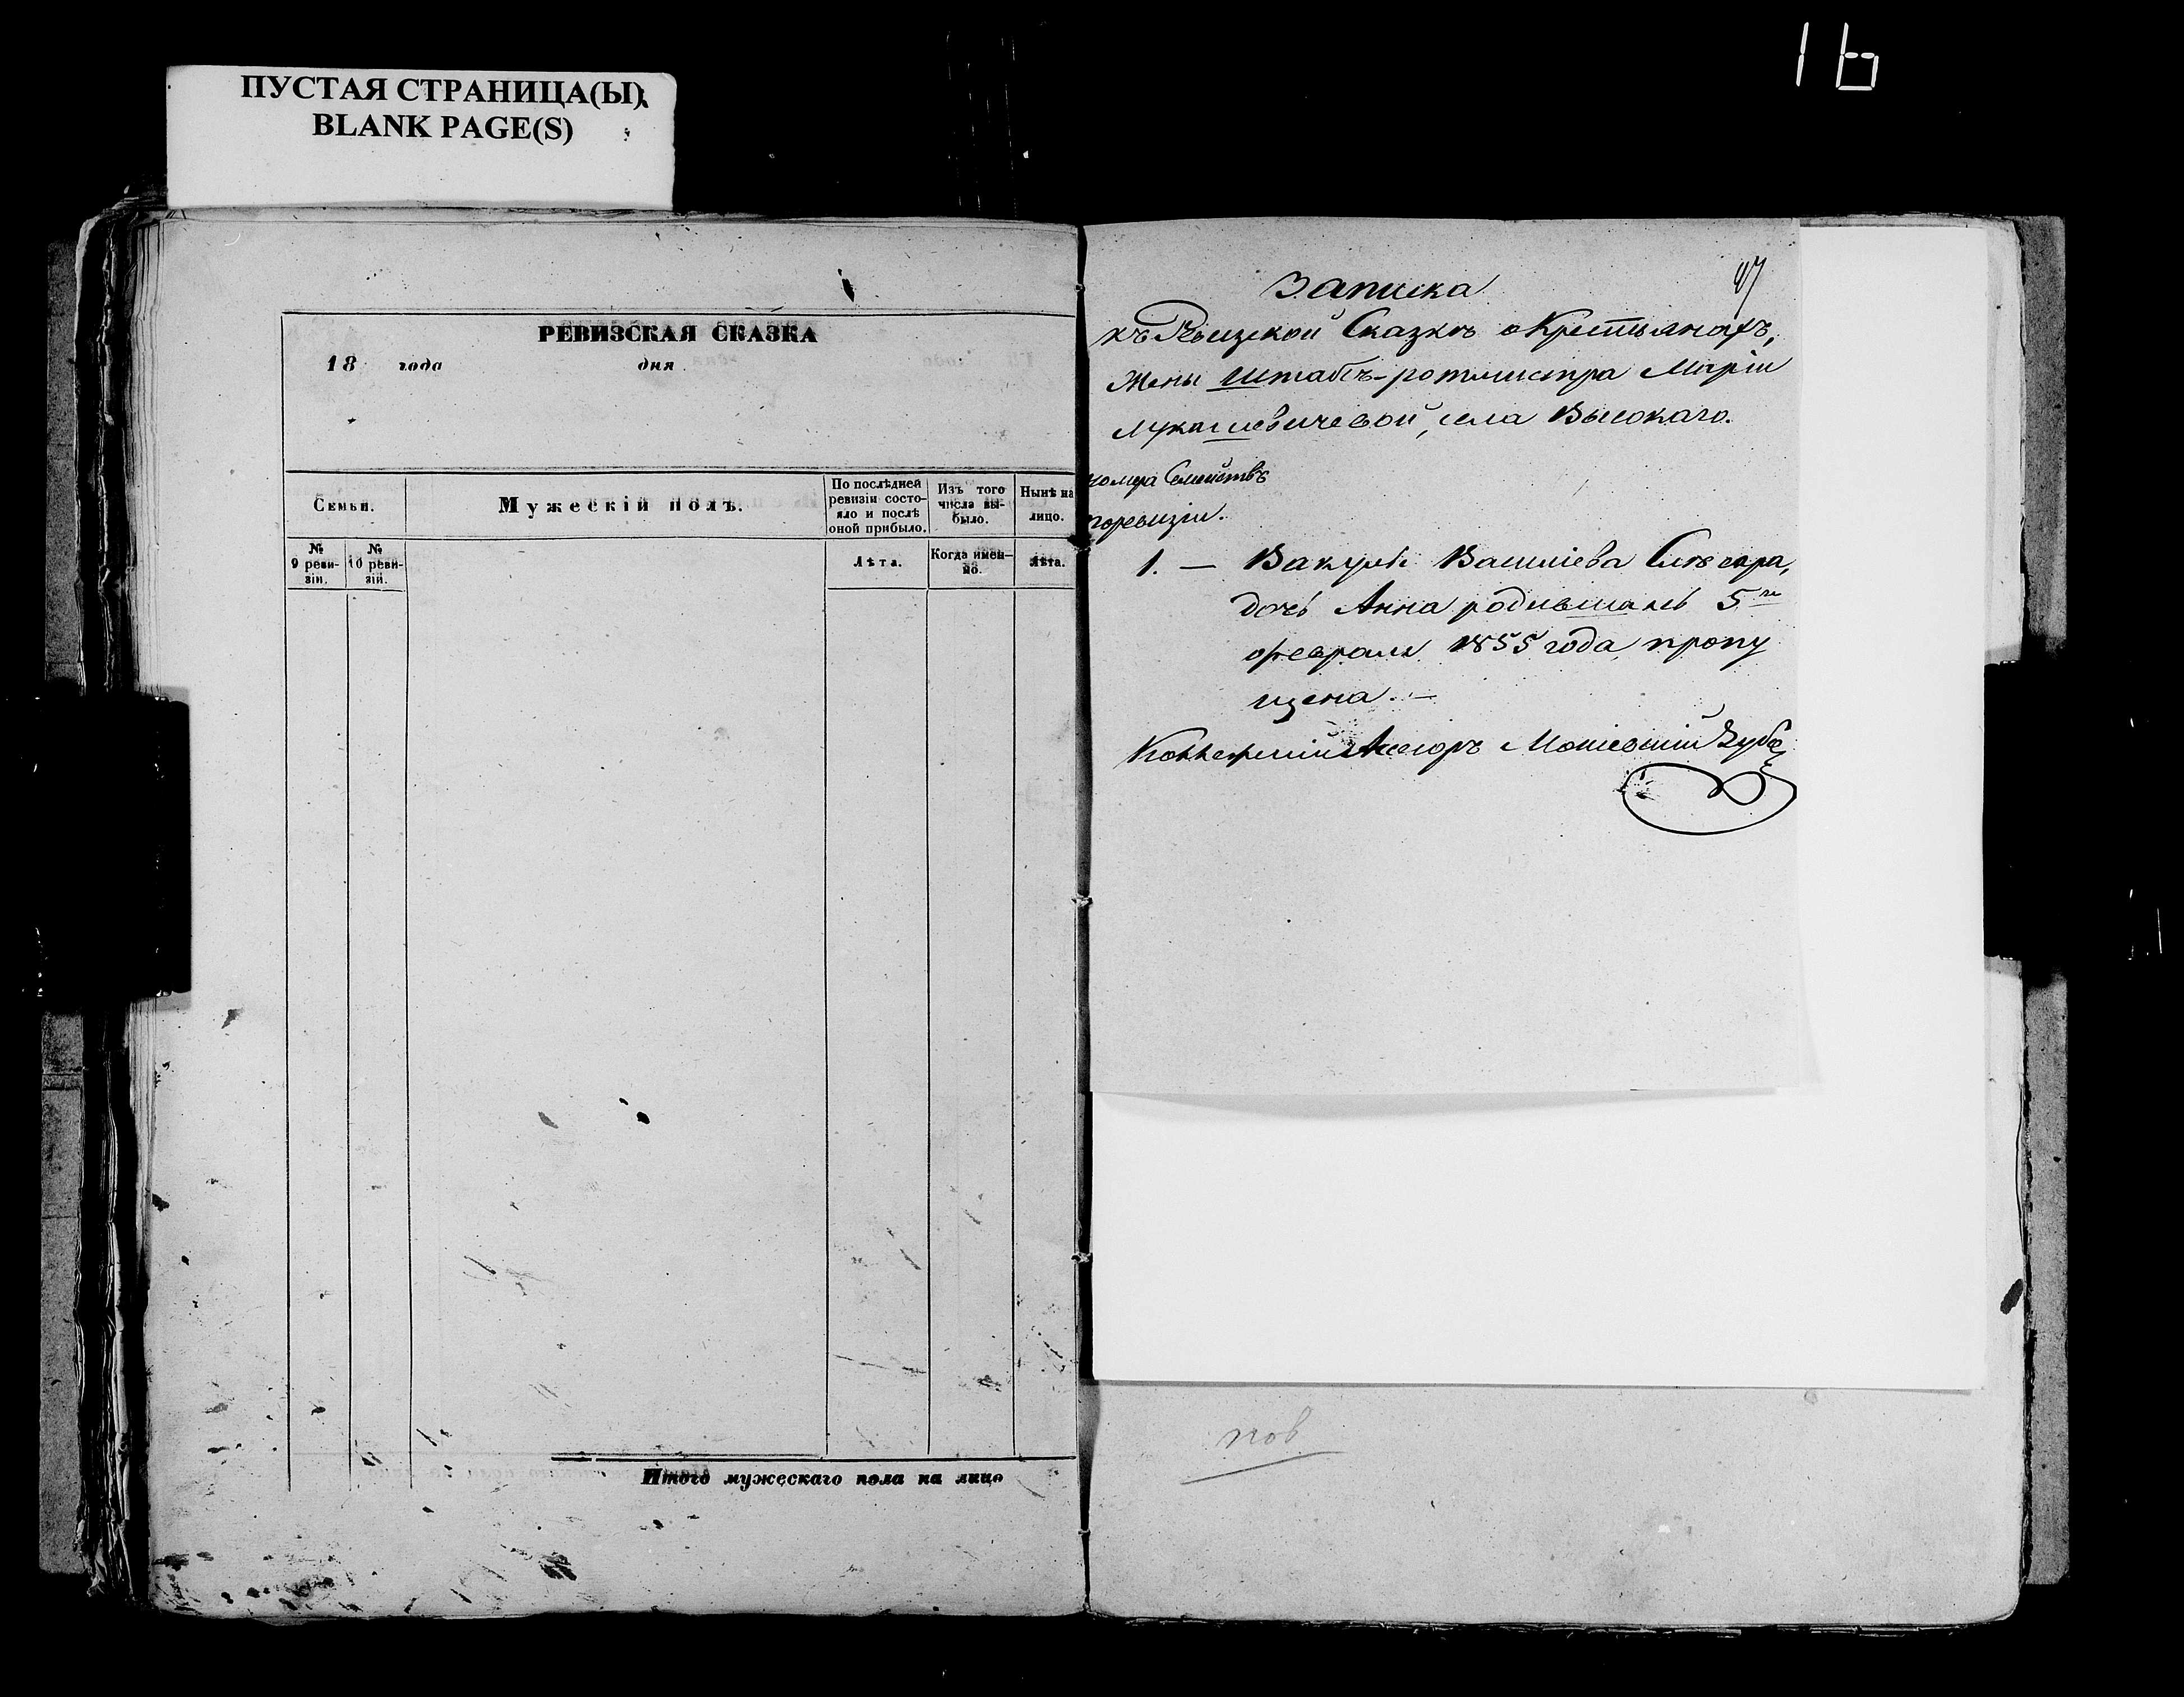 16
ПУСТАЯ СТРАНИЦА(Ы)
BLANK PAGE(S)
РЕВИЗСКАЯ СКАЗКА
18 года дня
Семьи.
Мужескій полъ.
По послѣдней ревизіи состояло и послѣ оной прибыло.
Изъ того числа выбыло.
Нынѣ на лицо.
№ 9 ревизіи.
№ 10 ревизіи.
Лѣта.
Когда именно.
Лѣта.
Итого мужескаго пола на лицо
Записка
къ Ревизской Сказкѣ о Крестьянахъ,
Жены Штабъ-ротмистра Маріи
Лукашевичевой, села Высокаго.
номера Семействъ
поревизіи.
1. — Вакулы Василіева Слѣсара,
дочь Анна родившаяся 5го
февраля 1855 года, пропу
щена. —
Коллежскій Ассесоръ
пов